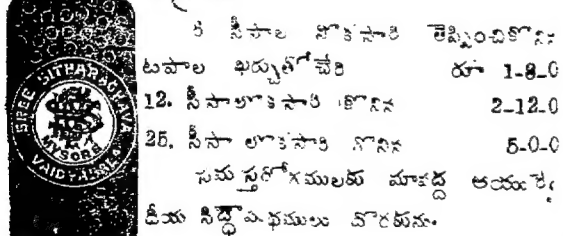 SREE SITHARAGHAVA VAIDYASALA
MYSORE
సీసాల నొకసారి తెప్పించికొనిన
టపాల ఖర్చుతోచేరి రూ 1-8-0
12. సీసాలొకసారి కొనిన 2-12-0
25. సీసా లొకసారి కొనిన 5-0-0
సమస్తరోగములకు మావద్ద ఆయుర్వే
దీయ సిద్ధౌషధములు దొరకును.